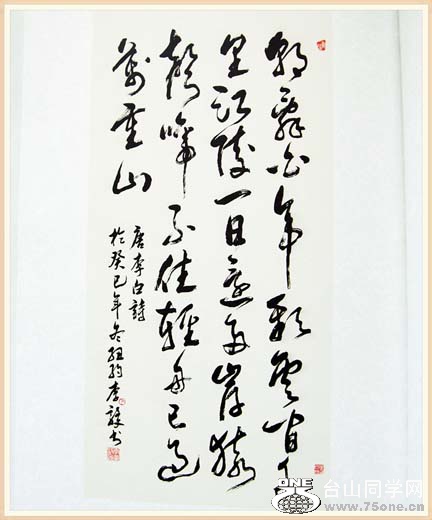 朝辭白帝彩雲間千
里江陵一日還兩岸猿
聲啼不住輕舟已過
萬重山
唐李白詩
於癸巳年冬紐約李書
ONE
台山同学网
www.75one.cn